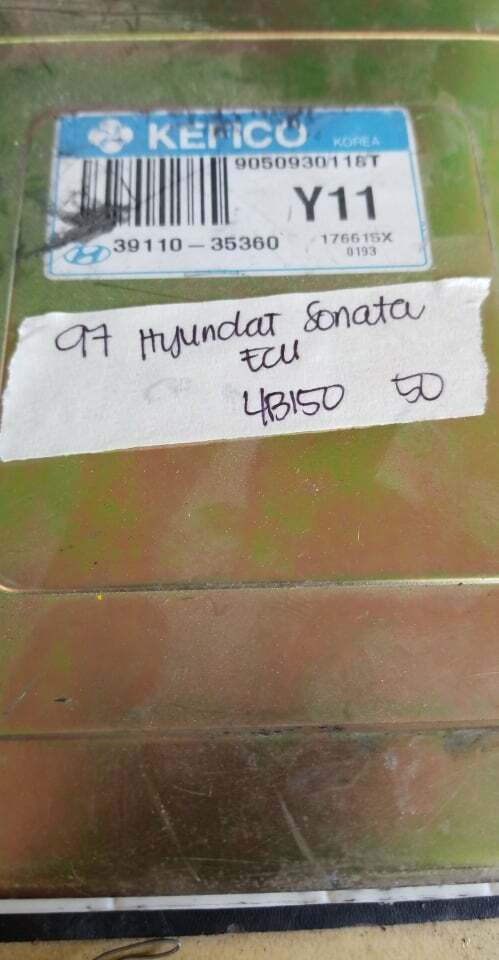 KEFICO KOREA
9050930118T
Y11
39110-35360 17661SX
0193
97 Hyundai Sonata
ECU
4B150 50